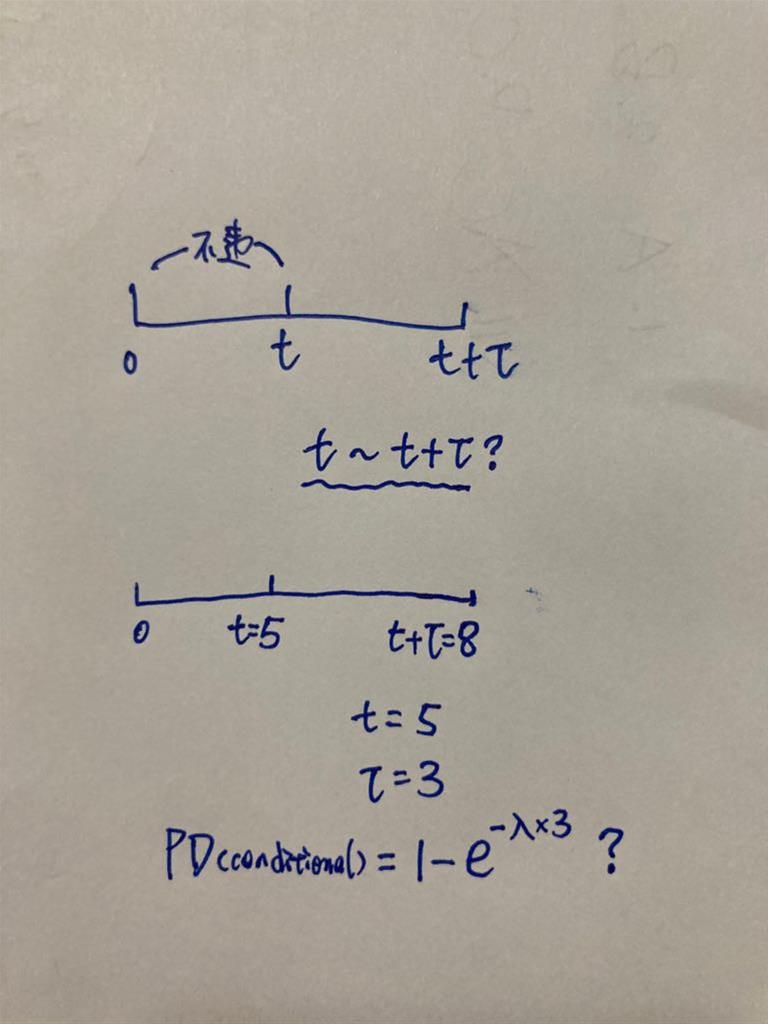 不违
0 t t+τ
t ~ t+τ?
0 t=5 t+τ=8
t = 5
τ = 3
PD(conditional) = 1-e^{-λ×3} ?